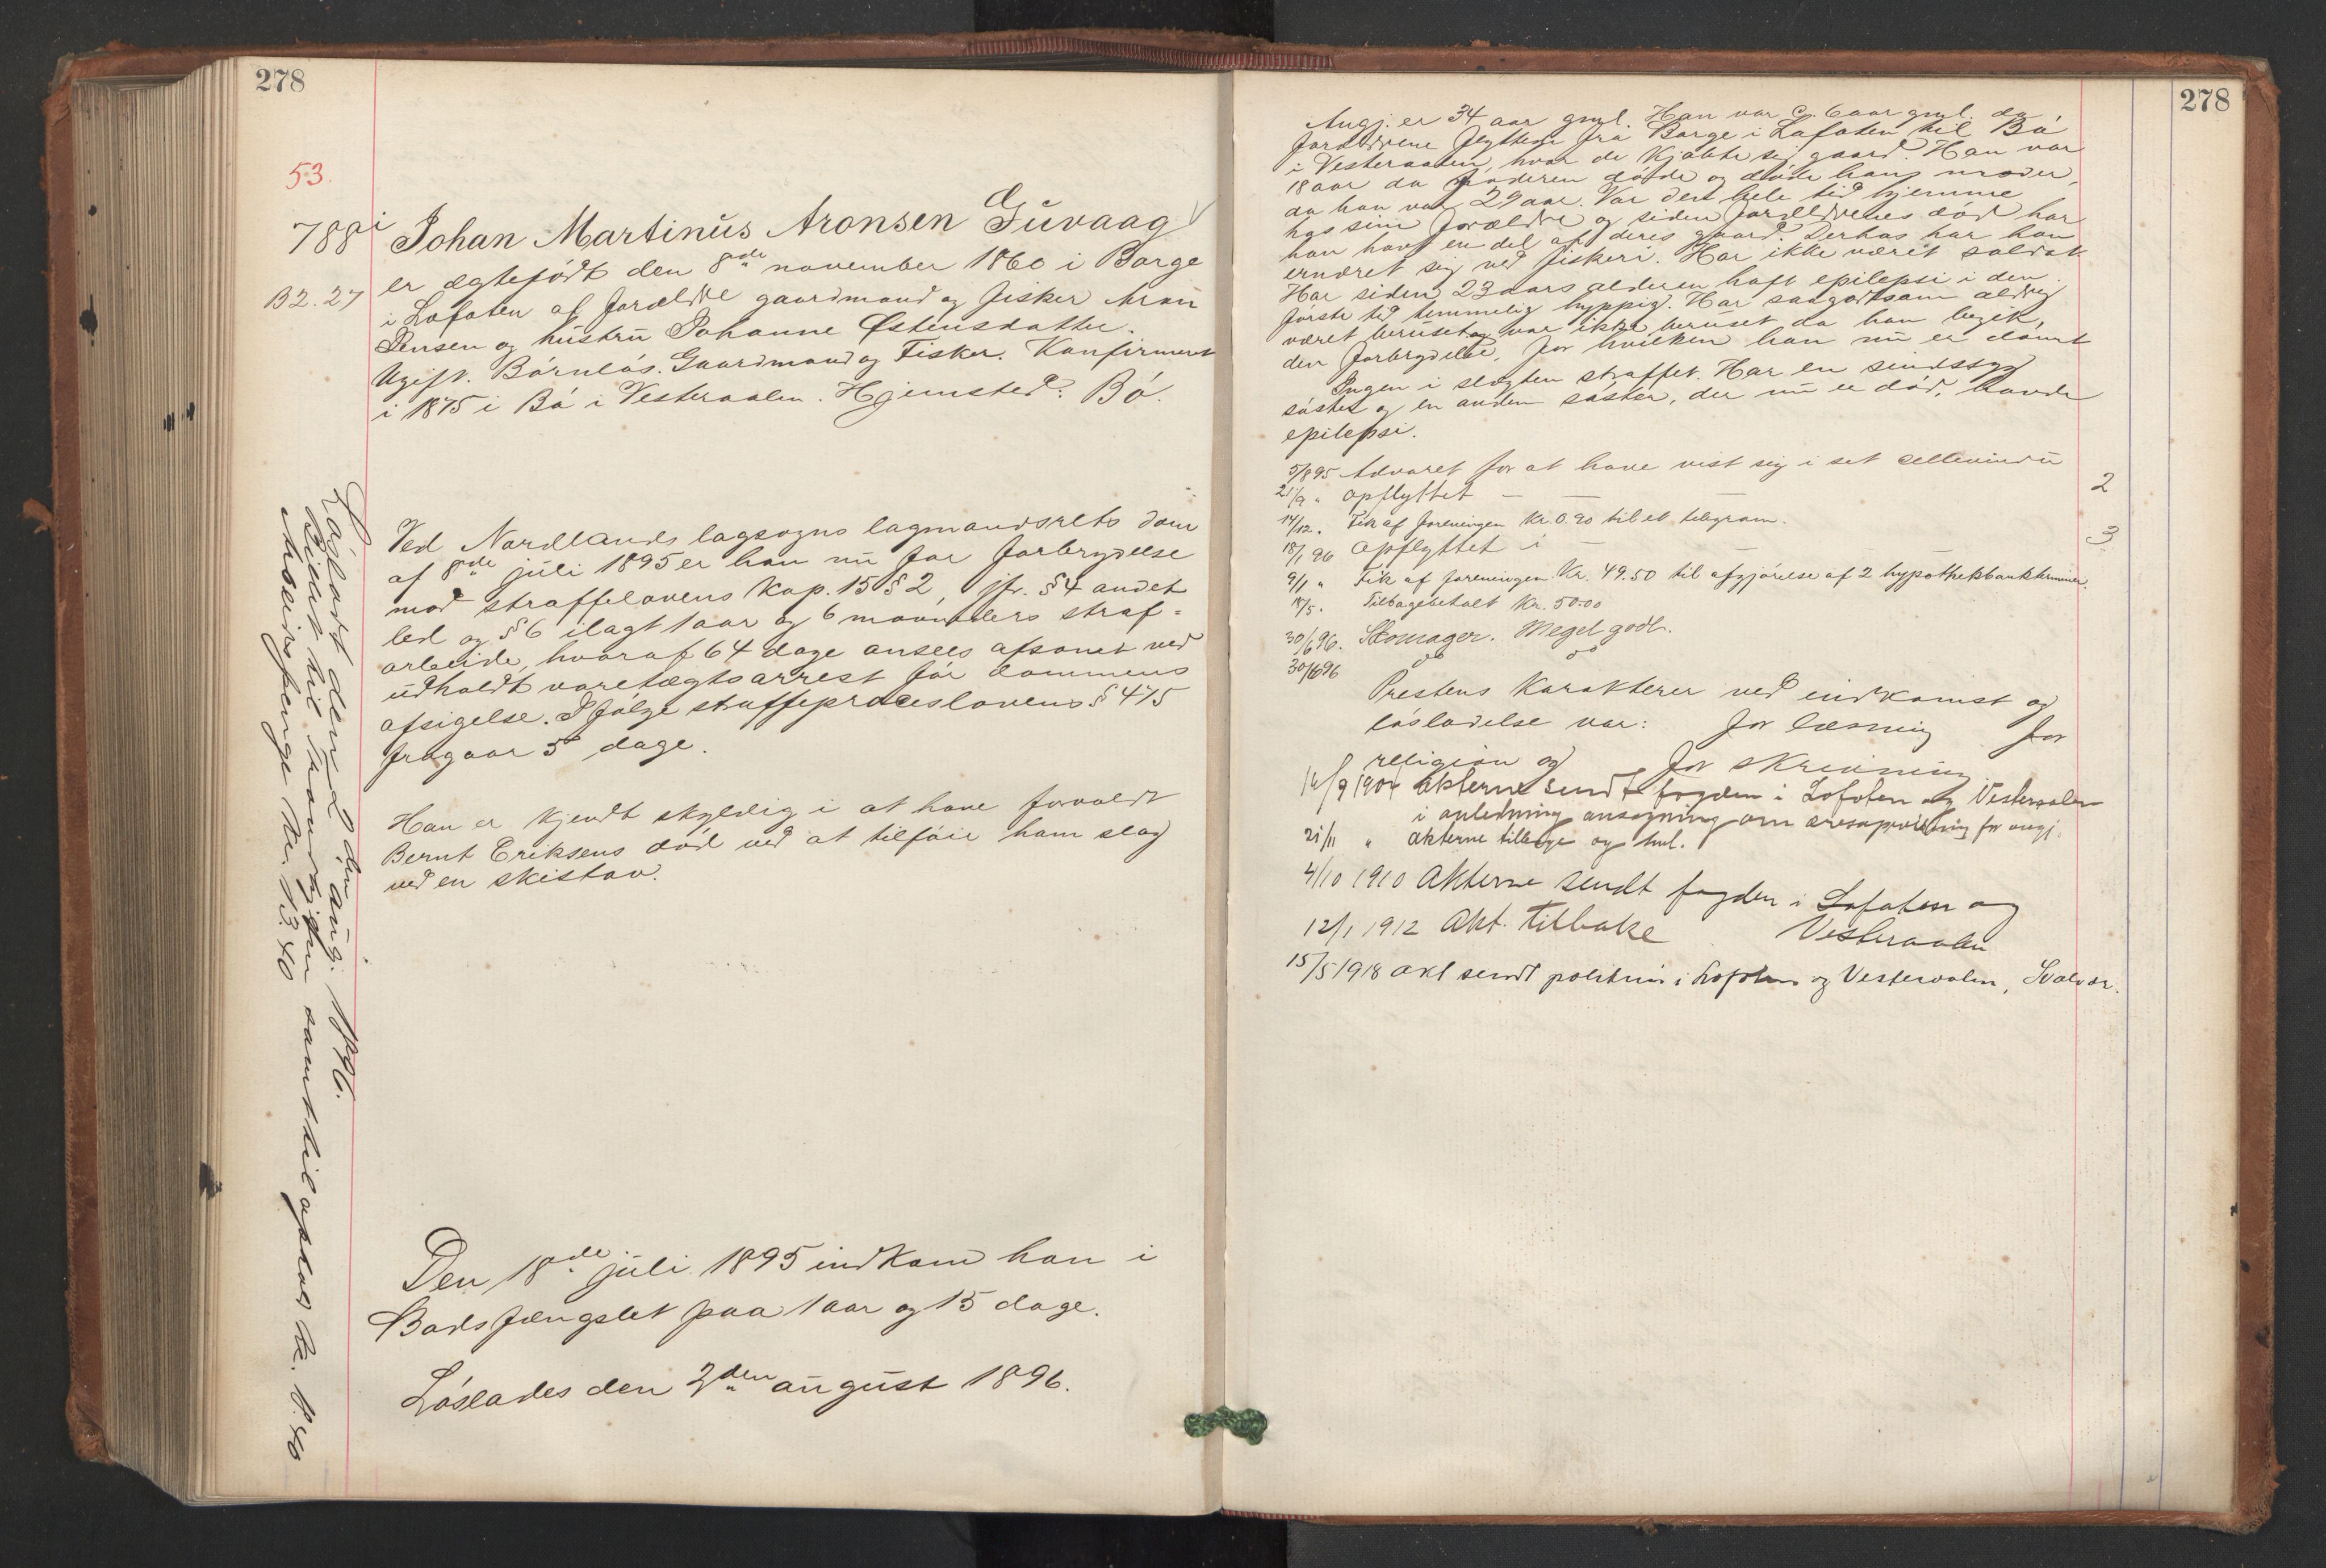 278
53.
788
B2. 27
Johan Martinus Aronsen Guvaag
er ægtefødt den 8de november 1860 i Borge
i Lofoten af forældre gaardmand og fisker Aron
Jensen og hustru Johanne Østensdatter.
Ugift. Børnløs. Gaardmand og Fisker. Konfirmert
i 1875 i Bø i Vesteraalen. Hjemsted: Bø.
Ved Nordlands lagsogns lagmandsrets dom
af 8de juli 1895 er han nu for forbrydelse
mod straffelovens kap. 15 § 2, jfr. § 4 andet
led og § 6 ilagt 1 aar og 6 maaneders straf-
arbeide, hvoraf 64 dage ansees afsonet ved
udholdt varetægtsarrest før dommens
afsigelse. Ifølge straffeproceslovens § 475
fragaar 5 dage.
Han er kjendt skyldig i at have forvoldt
Bernt Eriksens død ved at tilføie ham slag
ved en skistav.
Den 18de juli 1895 indkom han i
Bodsfængslet paa 1 aar og 15 dage.
Løslades den 2den august 1896.
Løsladt den 2den aug. 1896.
Billet til samt til kr. 8.40
Arbeidspenge kr. 13.40
278
Angj. er 34 aar gml. Han var c. 6 aar gml. da
forældrene flyttede fra Borge i Lofoten til Bø
i Vesteraalen, hvor de kjøbte sig gaard. Han var
18 aar da faderen døde og døde hans moder,
da han var 29 aar. Var den hele tid hjemme
hos sine forældre og siden forældrenes død har
han havt en del af deres gaard. Derhos har han
ernæret sig ved fiskeri. Har ikke været soldat.
Har siden 23 aars alderen haft epilepsi i den
første tid temmelig hyppig. Har saagodtsom aldrig
været beruset og var ikke beruset da han begik,
den forbrydelse, for hvilken han nu er dømt
Ingen i slægten straffet. Har en sindssyg
søster og en anden søster, der nu er død, havde
epilepsi.
5/8 95 Advaret for at have vist sig i set cellevindu
21/9 " Opflyttet — — — 2
14/12. Fik af foreningen Kr. 0.90 til et telegram.
18/1 96 Opflyttet i — — — 3
9/1 " Fik af foreningen Kr. 49.50 til afgjørelse af 2 hypothekbankterminer.
/5. Tilbagebetalt Kr. 50.00
30/6 96. Skomager. Meget godt.
30/6 96
Prestens Karakterer ved indkomst og
løsladelse var: for læsning for
religion og for skrivning
16/9 1904 Akterne sendt fogden i Lofoten og Vesteraalen
i anledning ansøgning om æresopreisning for angj.
21/11 " Akterne tilbage og hul.
4/10 1910 Akterne sendt fogden i Lofoten og
Vesteraalen
12/1 1912 Akt. tilbake
15/5 1918 Akt sendt politim i Lofoten og Vesteraalen, Svolvær.